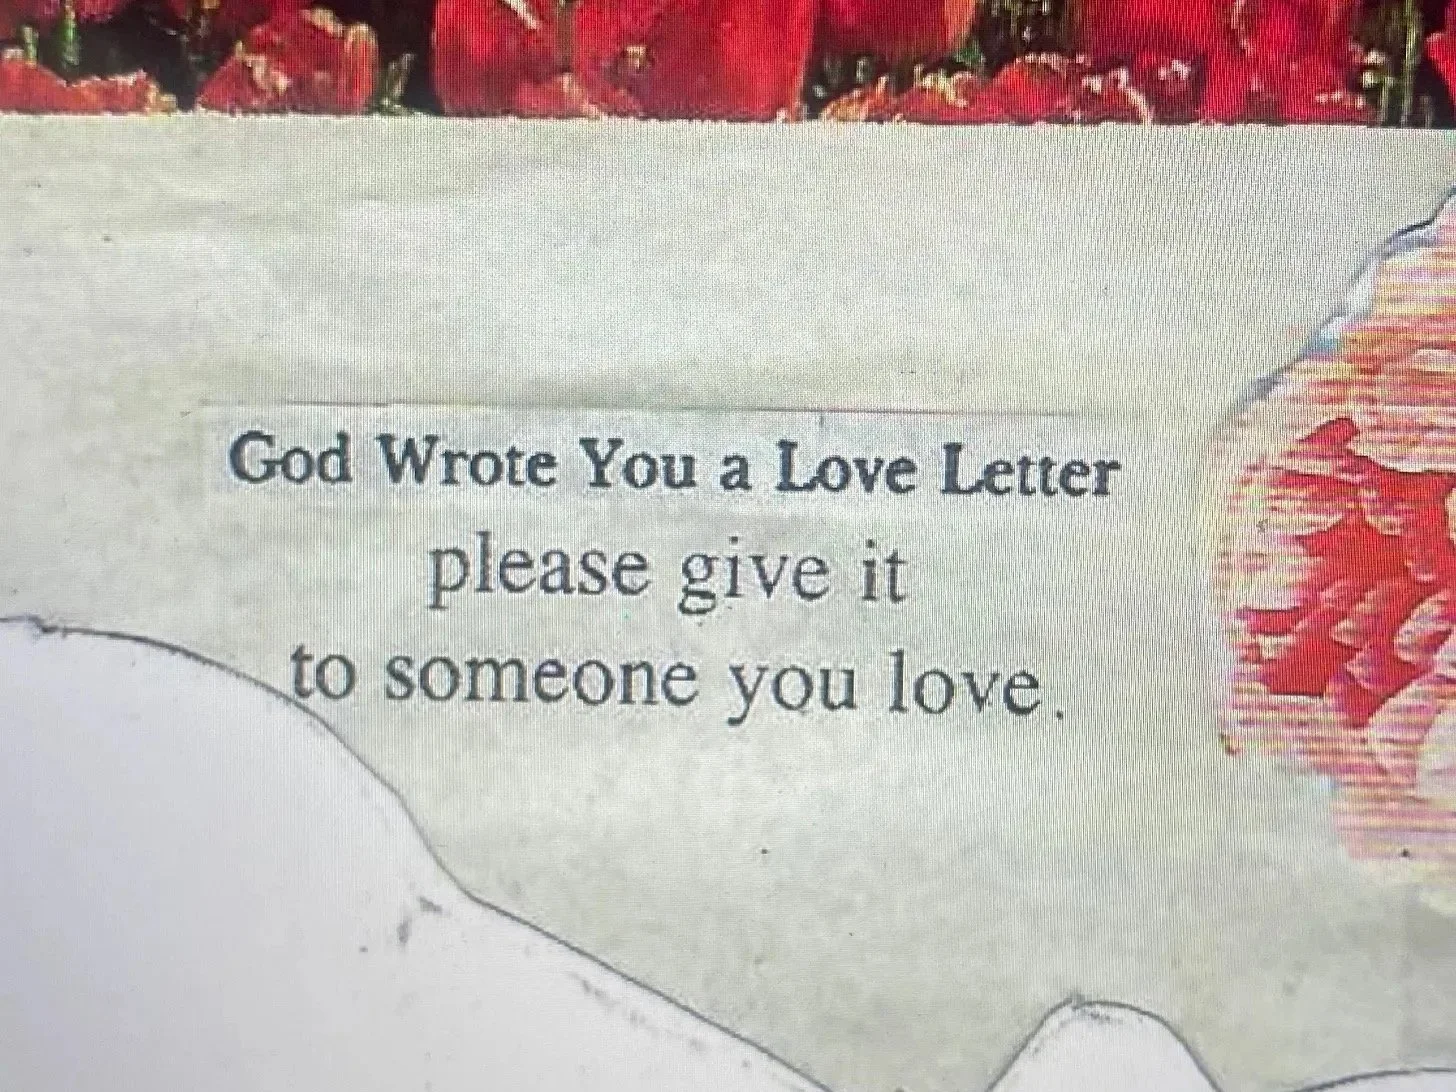 God Wrote You a Love Letter
please give it
to someone you love.